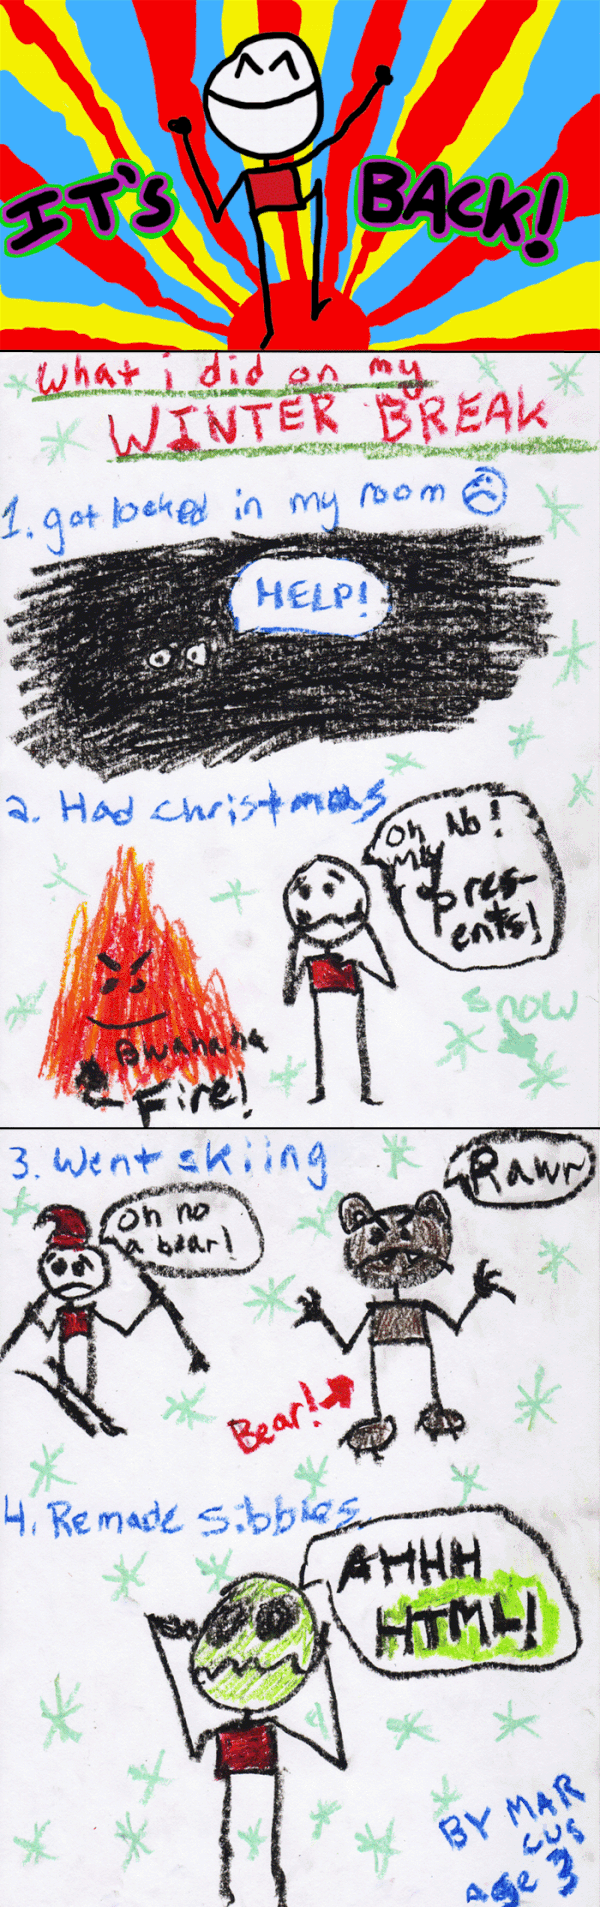 IT'S BACK!
What i did on my
WINTER BREAK
1. got locked in my room
HELP!
2. Had christmas
Oh No!
my
pres-
ents!
Bwahaha
Fire!
snow
3. Went skiing
Oh no
a bear!
Rawr
Bear!
4. Remade sibbles
AHHH
HTML!
BY MAR
CUS
Age 3